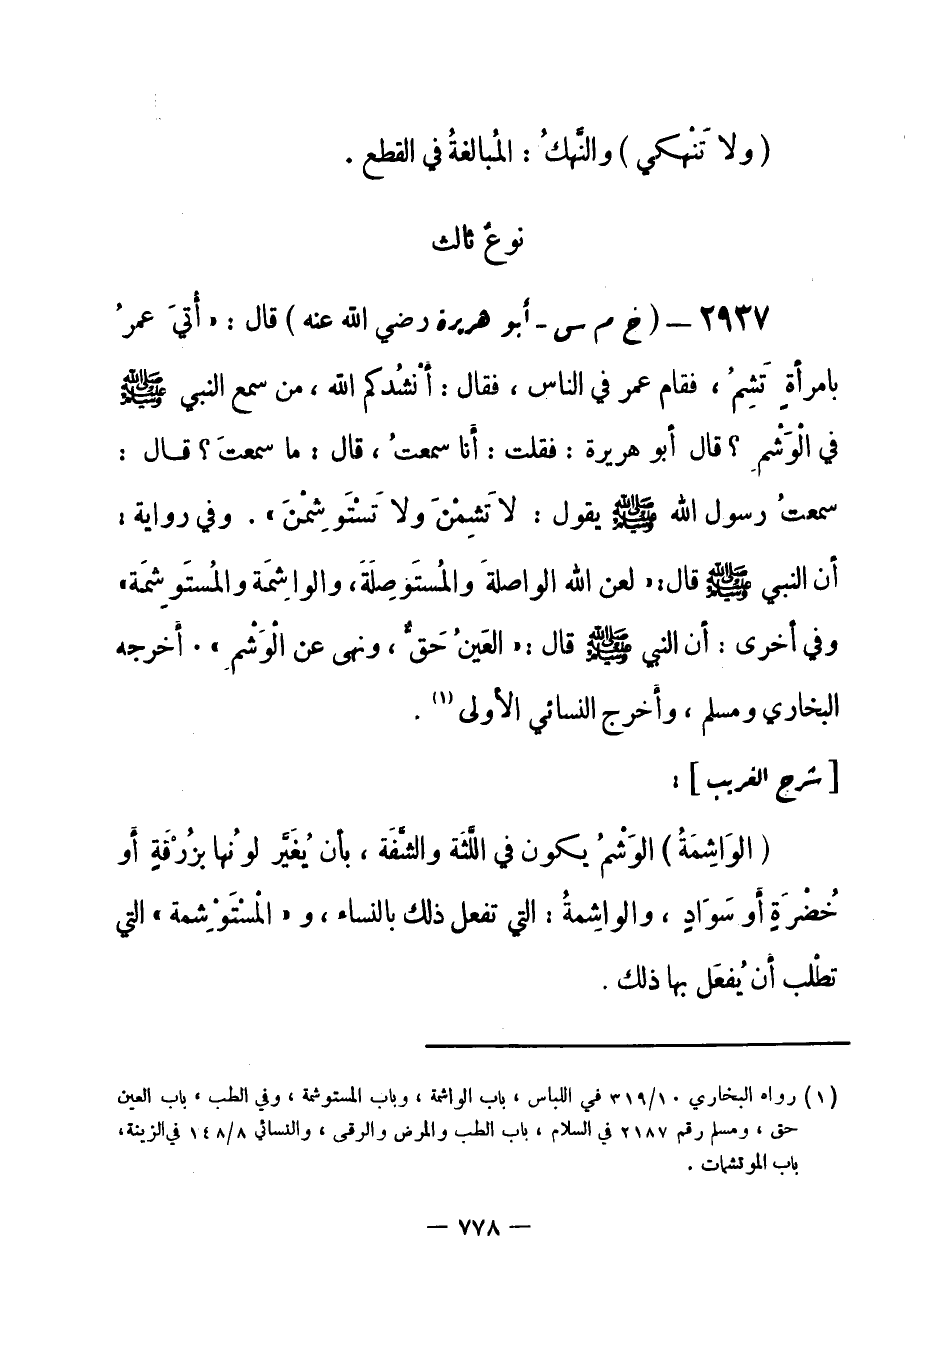 ( ولا تَنْهكي ) والنَّهكُ : المُبالغةُ في القطع .
نوعٌ ثالث
٢٩٣٧ – ( خ م س - أبو هريرة رضي الله عنه ) قال : « أُتيَ عمرُ
بامرأةٍ تَشِمُ ، فقام عمر في الناس ، فقال : أَنْشُدكم الله ، من سمع النبي ﷺ
في الْوَشْمِ ؟ قال أبو هريرة : فقلت : أنا سمعتُ ، قال : ما سمعتَ ؟ قـال :
سمعتُ رسول الله ﷺ يقول : لا تَشِمْنَ ولا تَسْتَوشِمْنَ » . وفي رواية :
أن النبي ﷺ قال: « لعن الله الواصلةَ والمُستَوصِلَةَ، والواشِمَة والمُستَوشِمَة»
وفي أخرى : أن النبي ﷺ قال : « العَينُ حَقٌّ ، ونهى عن الْوَشْمِ » . أخرجه
البخاري ومسلم ، وأخرج النسائي الأولى (١) .
[ شرح الغريب ] :
( الوَاشِمَةُ ) الوَشْمُ يكون في اللِّثَة والشَّفَة ، بأن يُغَيَّر لونُها بزُرْقَةٍ أو
خُضْرَةٍ أو سَوَادٍ ، والواشِمةُ : التي تفعل ذلك بالنساء ، و « الْمُسْتَوْشِمة » التي
تطْلب أن يُفعَل بها ذلك .
(١) رواه البخاري ٣١٩/١٠ في اللباس ، باب الواشمة ، وباب المستوشمة ، وفي الطب ، باب العين
حق ، ومسلم رقم ٢١٨٧ في السلام ، باب الطب والمرض والرقى ، والنسائي ١٤٨/٨ في الزينة،
باب الموتشمات .
– ٧٧٨ –